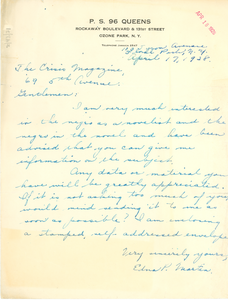 P. S. 96 QUEENS
ROCKAWAY BOULEVARD & 131ST STREET
OZONE PARK, N. Y.
Avenue
April 17, 1928
The Crisis Magazine,
69 5th Avenue:
Gentlemen:
I am very much interested
in the negro as a novelist and the
negro in the novel and have been
advised that you can give me
information on the subject.
Any data or material you
have will be greatly appreciated.
If it is not asking too much of you,
would mind sending it to me as
soon as possible? I am enclosing
a stamped, self-addressed envelope.
Very sincerely yours,
Edna K.